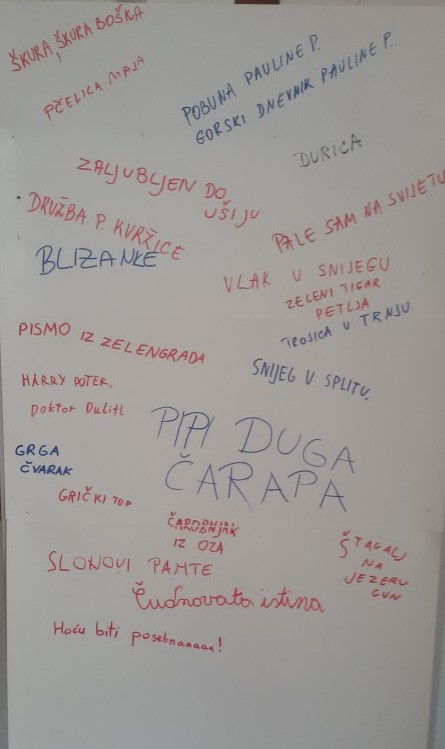 ŠKURA, ŠKURA BOŠKA
PČELICA MAJA
POBUNA PAULINE P.
GORSKI DNEVNIK PAULINE P.
DURICA
ZALJUBLJEN DO
UŠIJU
PALE SAM NA SVIJETU
DRUŽBA P. KVRŽICE
BLIZANKE
VLAK U SNIJEGU
ZELENI TIGAR
PETLJA
TROJICA U TRNJU
PISMO IZ ZELENGRADA
SNIJEG U SPLITU.
HARRY POTER.
Doktor Dulitl
PIPI DUGA
ČARAPA
GRGA
ČVARAK
GRIČKI TOP
ČAROBNJAK
IZ OZA
ŠTAGALJ
NA
JEZERU
GUN
SLONOVI PAMTE
Čudnovata istina
Hoću biti posebnaaaaa!